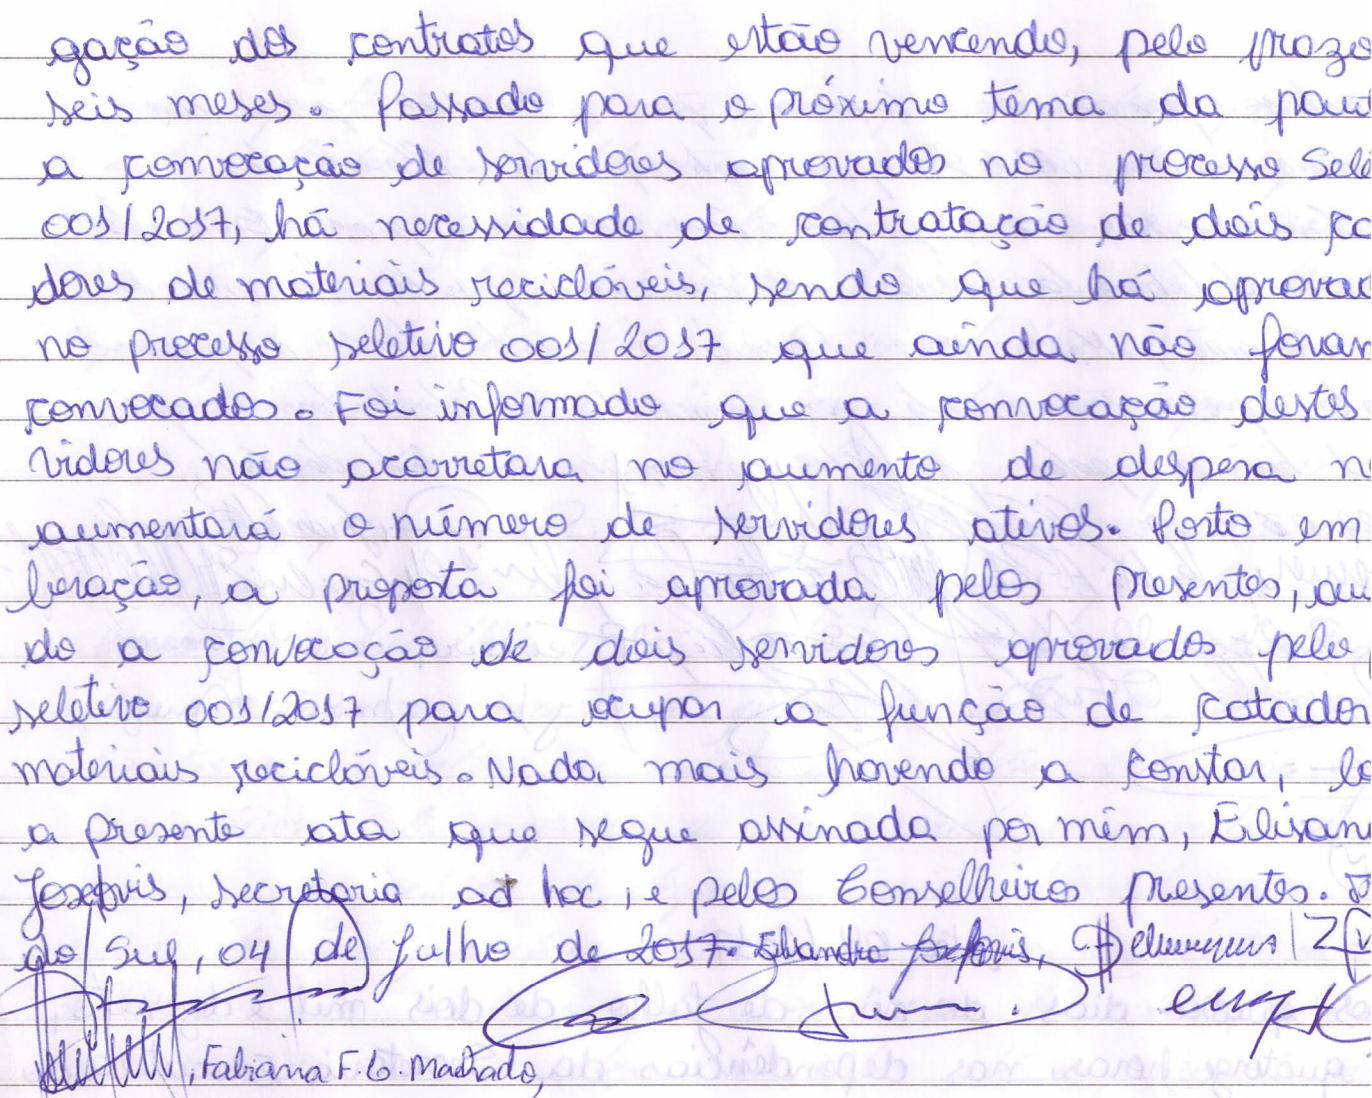 gação dos contratos que estão vencendo, pelo prazo
seis meses. Passado para o próximo tema da paut
a convocação de servidores aprovados no processo Sele
001/2017, há necessidade de contratação de dois ca
dores de materiais recicláveis, sendo que há aprovad
no processo seletivo 001/2017 que ainda não foram
convocados. Foi informado que a convocação destes
vidores não acarretara no aumento de despesa n
aumentará o número de servidores ativos. Posto em
beração, a proposta foi aprovada pelos presentes, au
do a convocação de dois servidores aprovados pelo
seletivo 001/2017 para ocupar a função de catador
materiais recicláveis. Nada mais havendo a constar, la
a presente ata que segue assinada por mim, Elisan
Josefovis, secretaria ad hoc, e pelos Conselheiros presentes.
do Sul, 04 de Julho de 2017.
, Fabiana F. G. Machado,